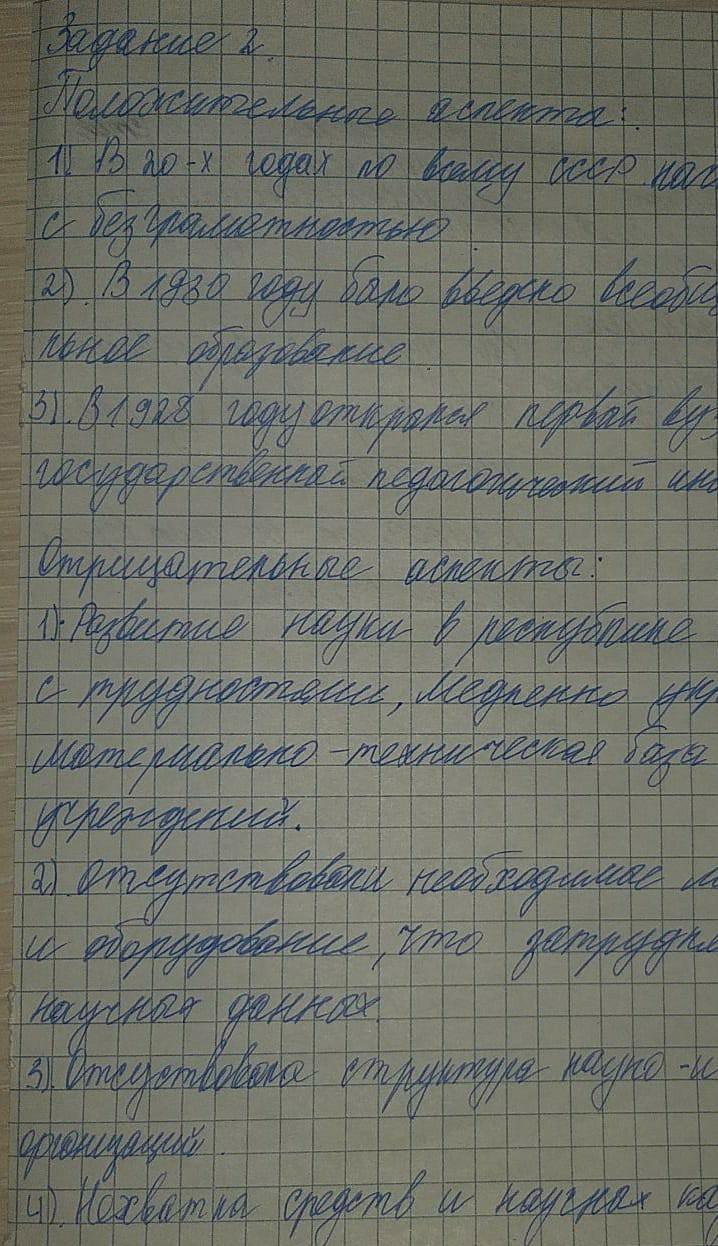 Задание 2.
Положительные аспекта:
1). В 20-х годах по всему СССР нач
с безграмотностью.
2). В 1930 году было введено всеобщ
льное образование
3). В 1928 году открылся первый вуз
государственный педагогический инс
Отрицательные аспекты:
1). Развитие науки в республике
с трудностями, медленно укр
материально-техническая база
учреждений.
2). Отсутствовали необходимые
и оборудование, что затрудня
научных данных.
3). Отсуствовала структура научно-и
организаций.
4). Нехватка средств и научных ка